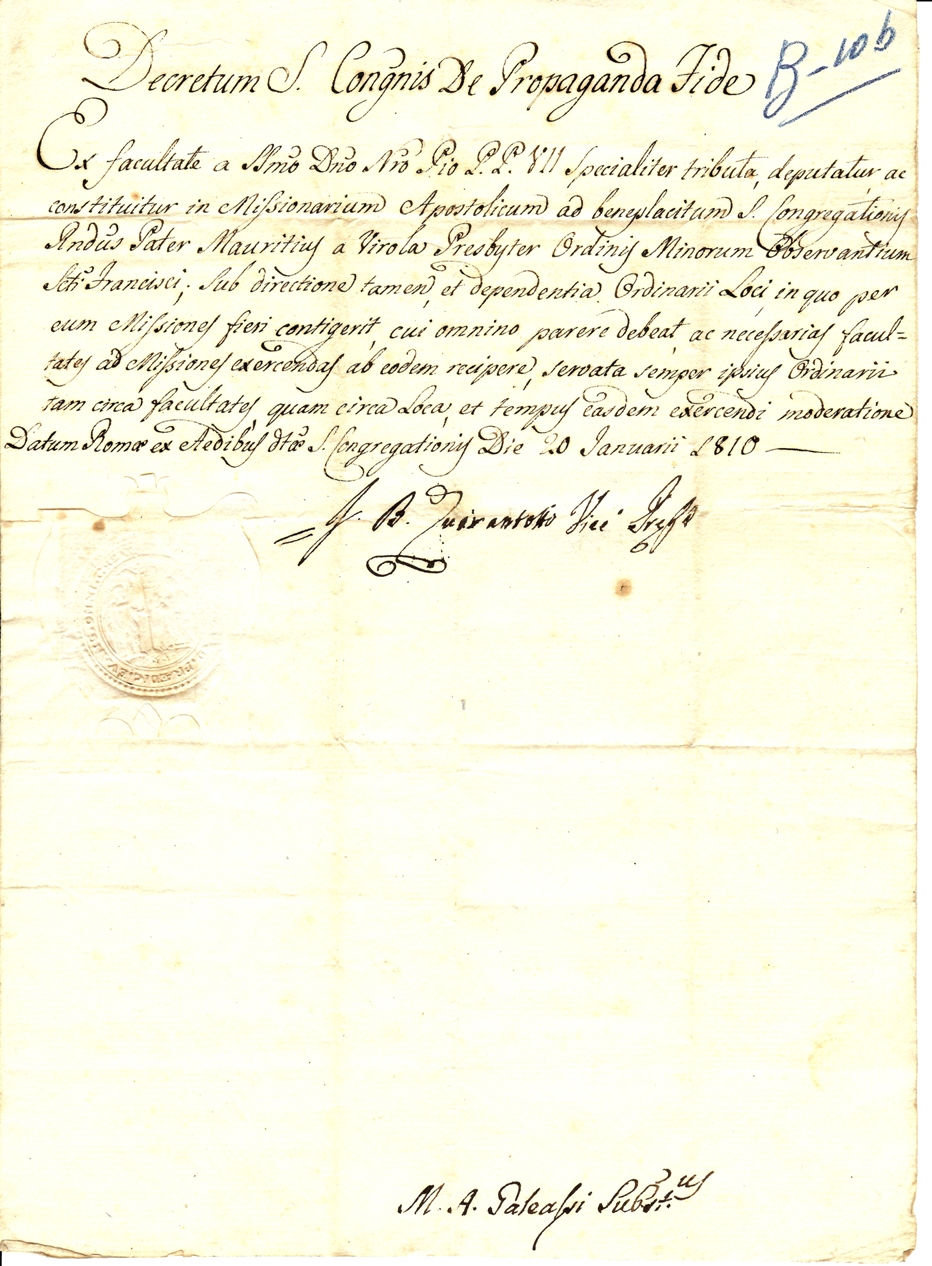 Decretum S. Congnis De Propaganda Fide
B-10b
Ex facultate a SSmo Dno Nro Pio P.P. VII Specialiter tributa, deputatur ac
constituitur in Missionarium Apostolicum ad beneplacitum S. Congregationis
Rndus Pater Mauritius a Virola Presbyter Ordinis Minorum Observantium
Scti Francisci; Sub directione tamen, et dependentia Ordinarii Loci, in quo per
eum Missiones fieri contigerit, cui omnino parere debeat, ac necessarias facul=
tates ad Missiones exercendas ab eodem recipere, servata semper ipsius Ordinarii
tam circa facultates, quam circa Loca, et tempus easdem exercendi moderatione
Datum Romæ ex Aedibus dtæ S. Congregationis Die 20 Januarii 1810
J. B. Quarantotti Vice
M. A. Galeassi Substus